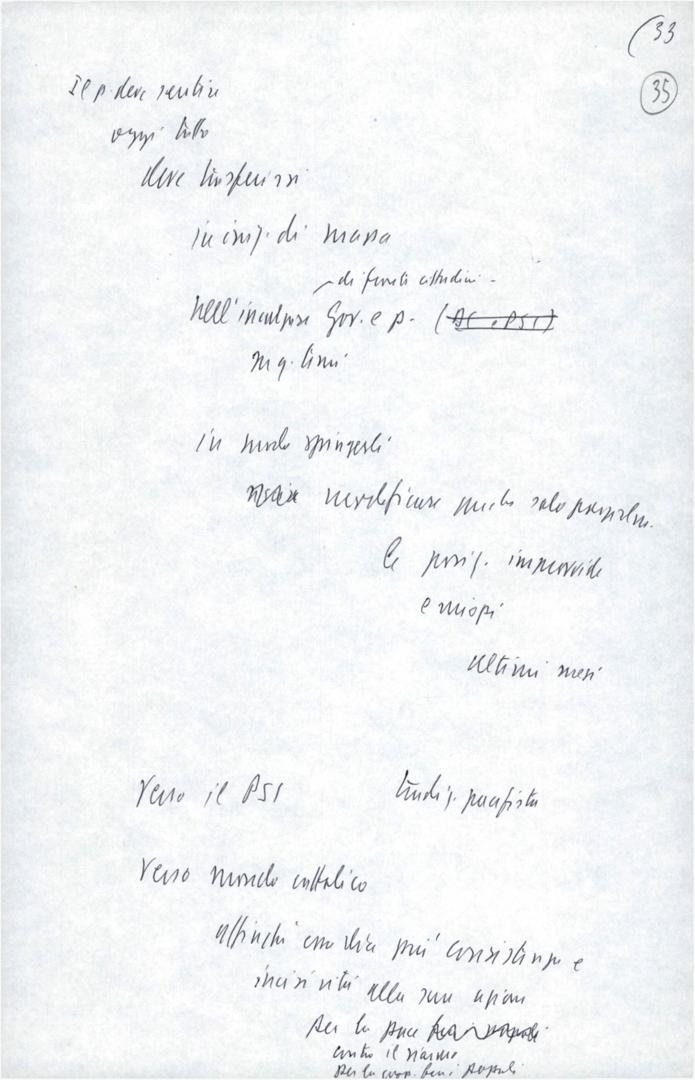 (33
35
Il p. deve sentire
oggi tutto
deve trasferirsi
in iniz. di massa
di fronte cittadini -
nell'incalzare Gov. e p. (DC e PSI)
in q. temi
in modo spingerli
modificare anche solo parzialm.
le posiz. improvvide
e miopi
ultimi mesi
Verso il PSI tradiz. pacifista
Verso mondo cattolico
affinché dia più consistenza e
incisività alla sua azione
per la pace
contro il riarmo
per la coop. fra i popoli